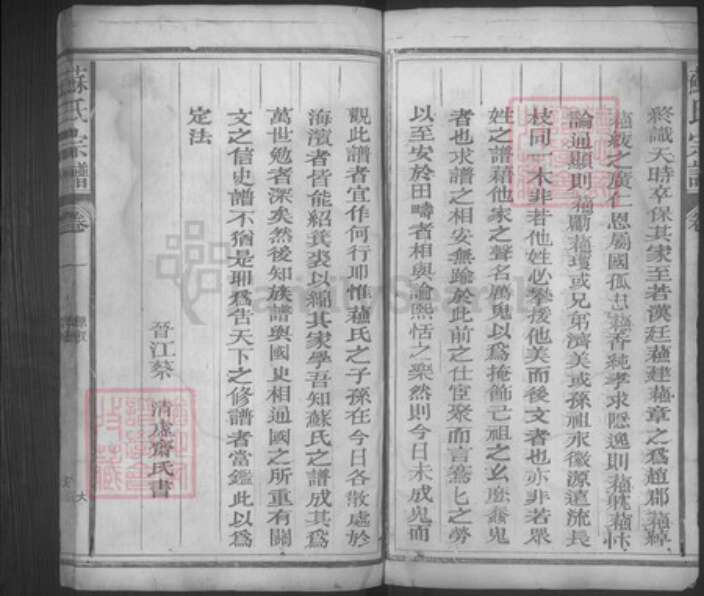 終識天時卒保其家至若漢廷蘓建蘓章之為趙郡蘓綽
蘓威之廣仁恩屬國孤忠蘓香純孝求隱逸則蘓耽蘓林
論通顯則蘓勗蘓瓌或兄弟濟美或孫祖永徽源遠流長
枝同一木非若他姓必攀援他美而後文者也亦非若眾
姓之譜藉他家之聲名厲鬼以為掩飾己祖之么麼餐鬼
者也求譜之相安無踰於此前之仕宦眾而言驚匕之勞
以至安於田疇者相與論熙恬之樂然則今日未成鬼而
觀此譜者宜作何行卹惟蘓氏之子孫在今日各散處於
海濱者皆能紹箕裘以繩其家學吾知蘇氏之譜成其為
萬世勉者深矣然後知族譜與國史相通國之所重有關
文之信史譜不猶是耶為告天下之修譜者當鑑此以為
定法
晉江蔡 清虛齋氏書
蘇氏宗譜 卷一
蘇氏宗譜 卷
FamilySearch